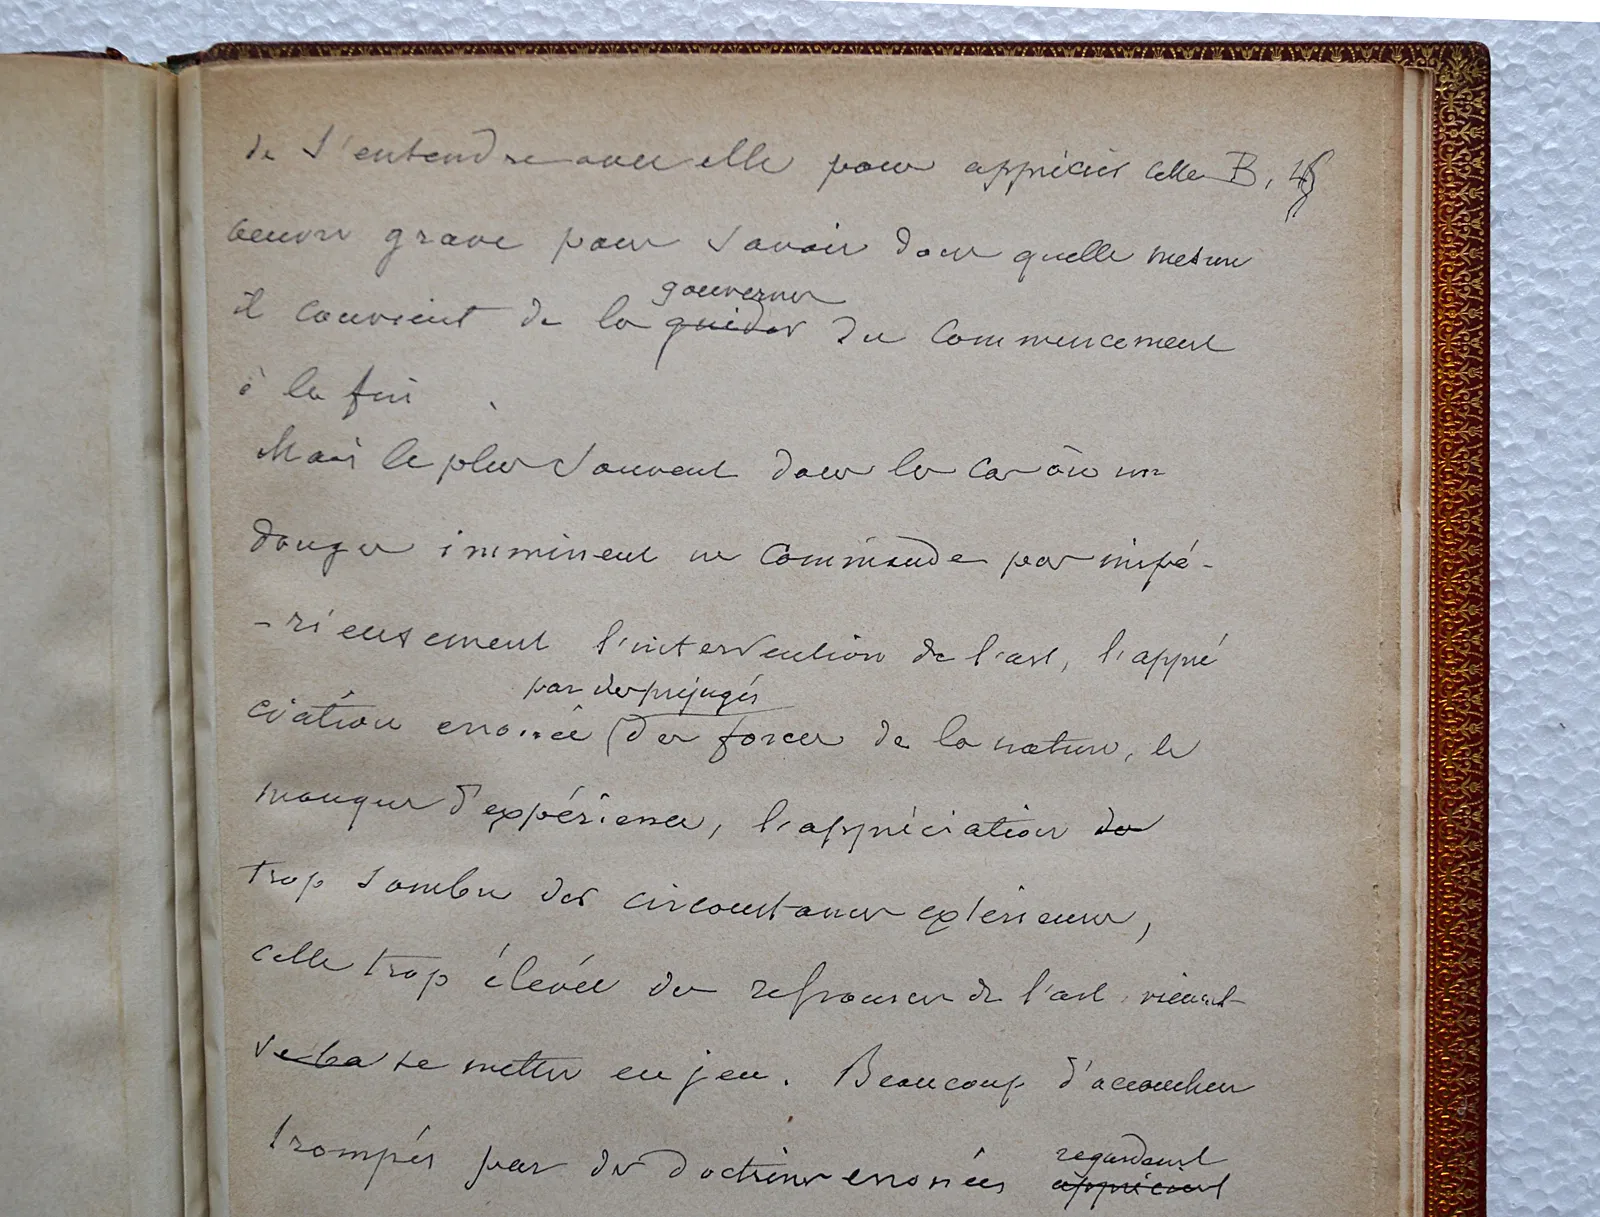 de s'entendre avec elle pour apprécier cette B, 4
oeuvre grave pour savoir dans quelle mesure
gouverner
il convient de la guider du commencement
à la fin
Mais le plus souvent dans les cas où un
danger imminent ne commande pas impé-
-rieusement l'intervention de l'art, l'appré
par des préjugés
ciation erronée (des forces de la nature, le
manque d'expérience, l'appréciation de
trop sombre des circonstances extérieures,
celle trop élevée des ressources de l'art vient
se mettre en jeu. Beaucoup d'accoucheurs
trompés par des doctrines erronées
regardent
apprécient